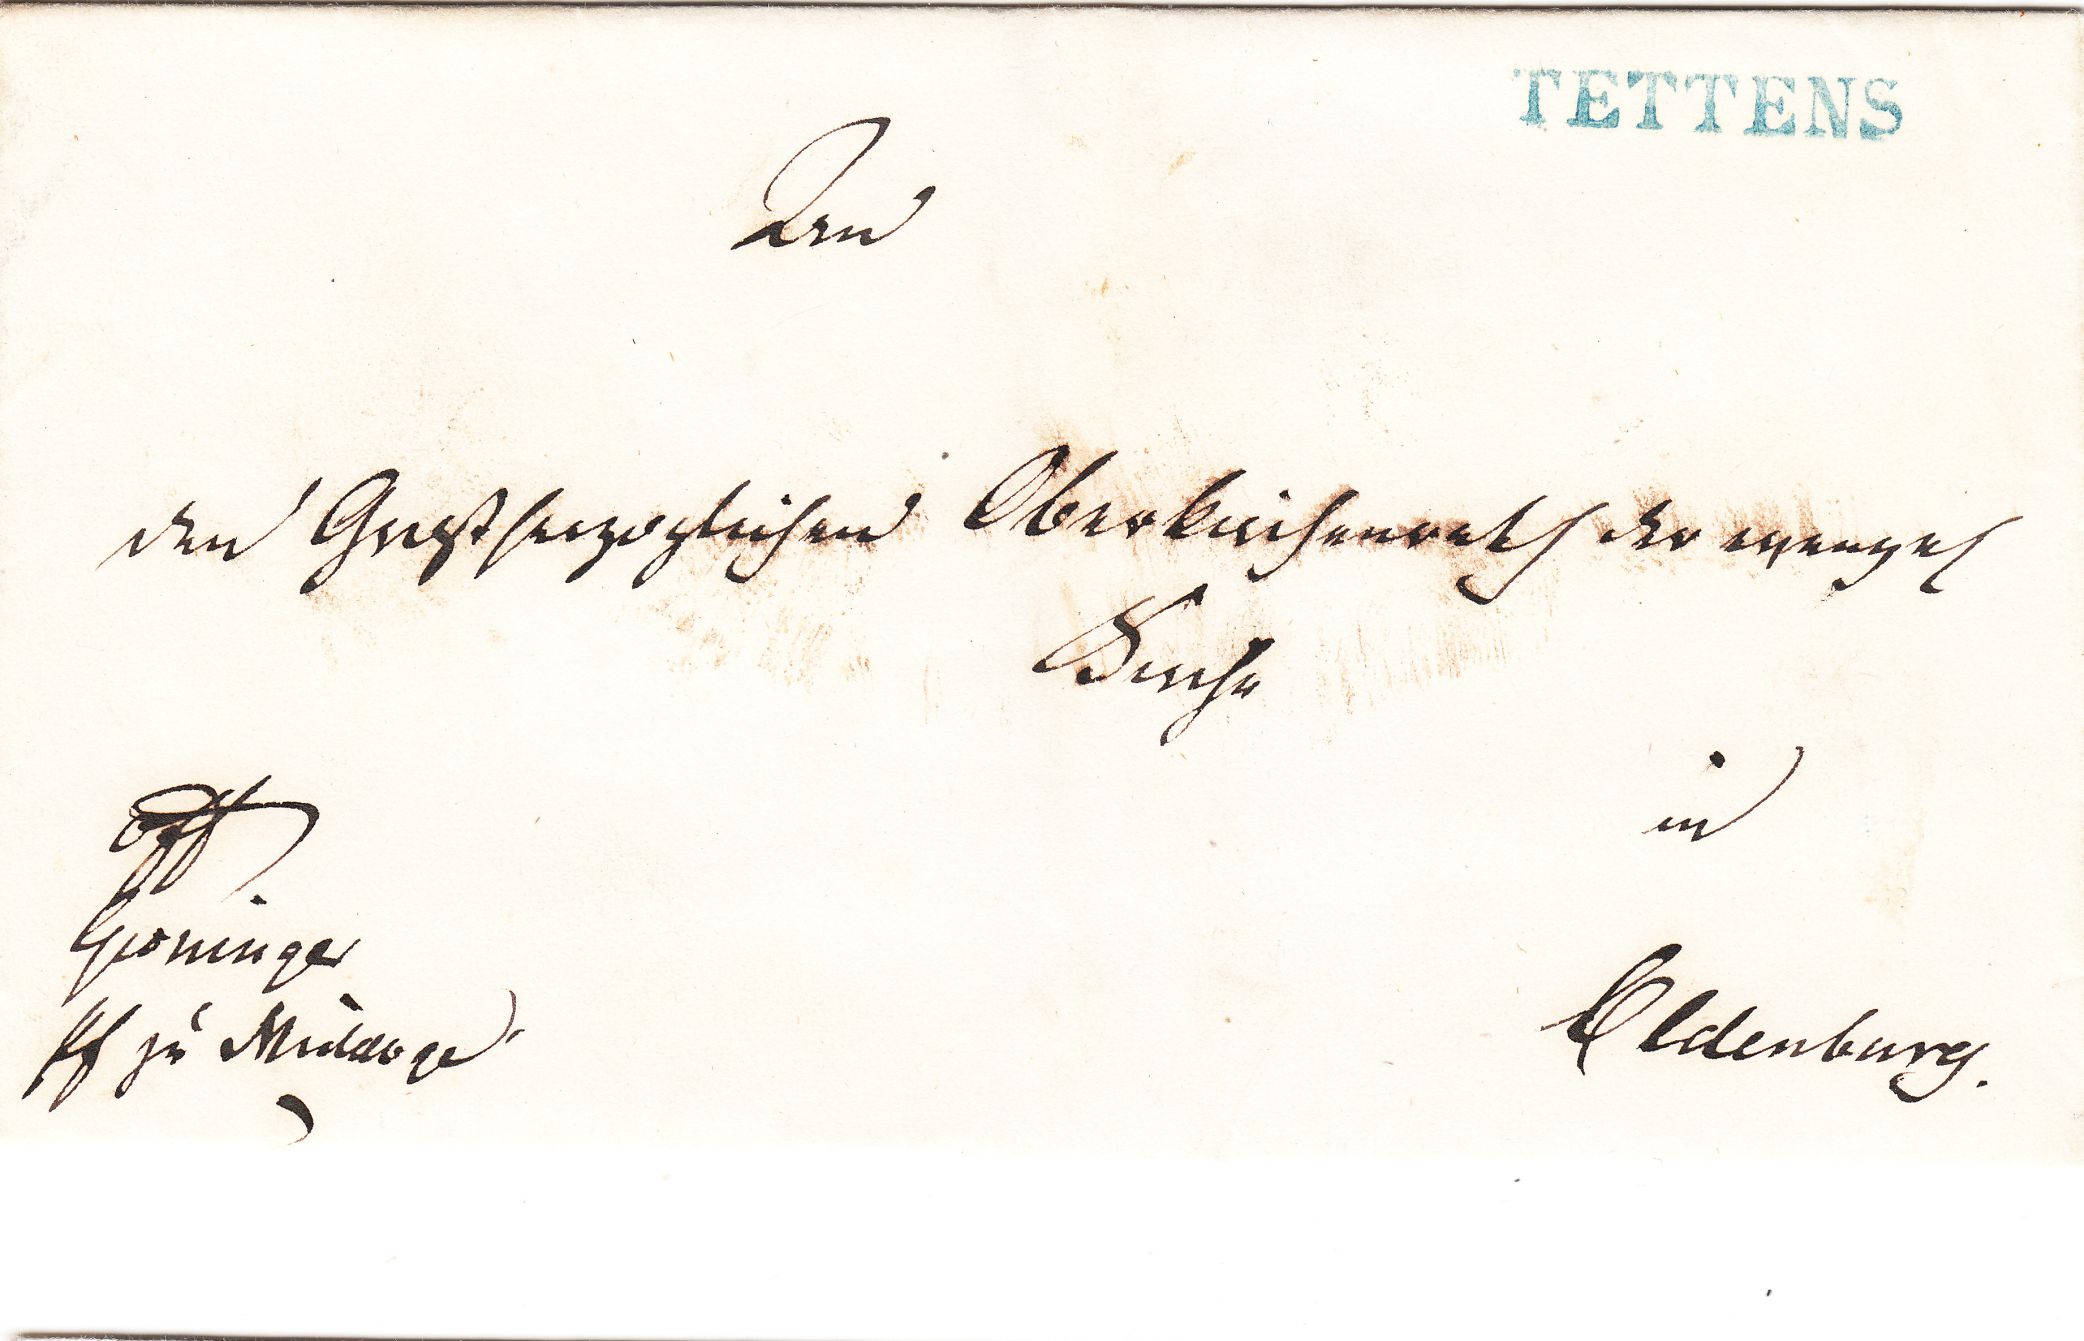 TETTENS
An
den Großherzoglichen Oberkirchenrath der evangel
Kirche
in
Oldenburg.
Groninger
Pf zu Middoge